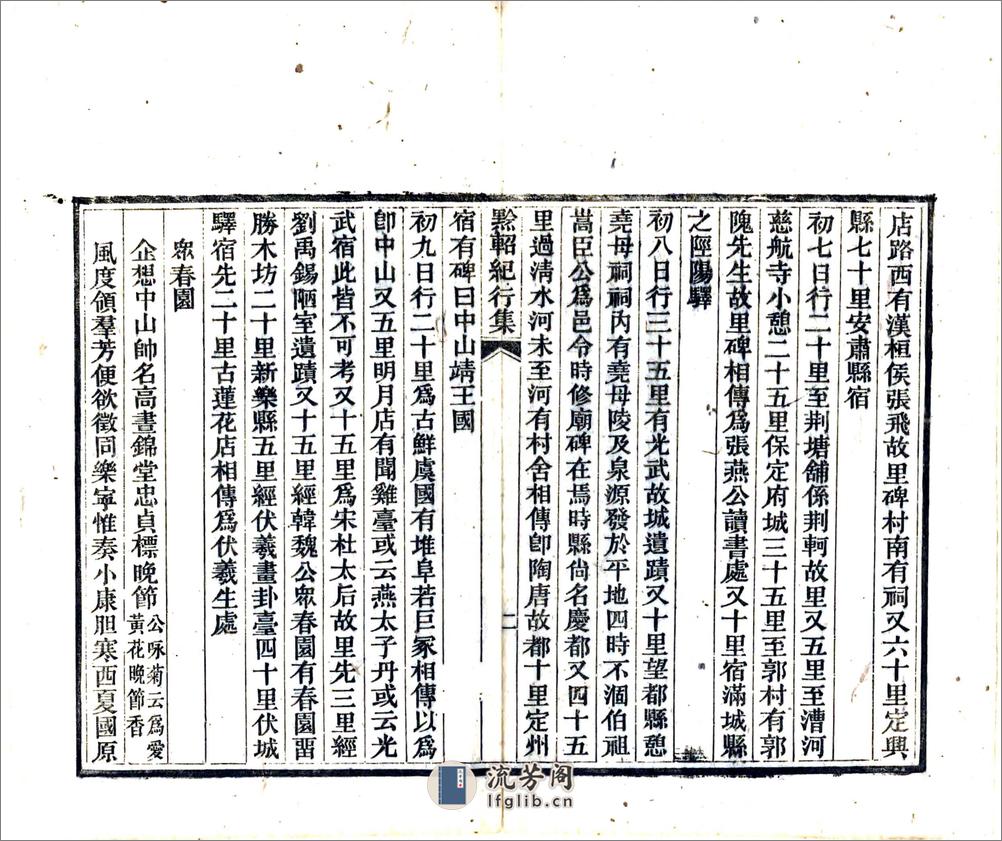 店路西有漢桓侯張飛故里碑村南有祠又六十里定興
縣七十里安肅縣宿
初七日行二十里至荆塘舖係荆軻故里又五里至漕河
慈航寺小憩二十五里保定府城三十五里至郭村有郭
隗先生故里碑相傳爲張燕公讀書處又十里宿滿城縣
之陘陽驛
初八日行三十五里有光武故城遺蹟又十里望都縣憩
堯母祠祠内有堯母陵及泉源發於平地四時不涸伯祖
嵩臣公爲邑令時修廟碑在焉時縣尙名慶都又四十五
里過清水河未至河有村舍相傳卽陶唐故都十里定州
黔軺紀行集
二
宿有碑曰中山靖王國
初九日行二十里爲古鮮虞國有堆阜若巨冢相傳以爲
卽中山又五里明月店有聞雞臺或云燕太子丹或云光
武宿此皆不可考又十五里爲宋杜太后故里先三里經
劉禹錫陋室遺蹟又十五里經韓魏公衆春園有春園畱
勝木坊二十里新樂縣五里經伏羲畫卦臺四十里伏城
驛宿先二十里古蓮花店相傳爲伏羲生處
衆春園
企想中山帥名高晝錦堂忠貞標晚節公咏菊云爲愛黃花晚節香
風度領羣芳便欲徵同樂寧惟奏小康胆寒西夏國原
流芳阁
lfglib.cn